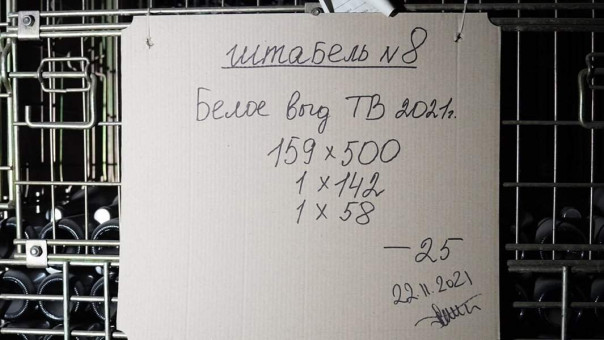 штабель N8
Белое выд ТВ 2021г.
159 × 500
1 × 142
1 × 58
— 25
22.11.2021